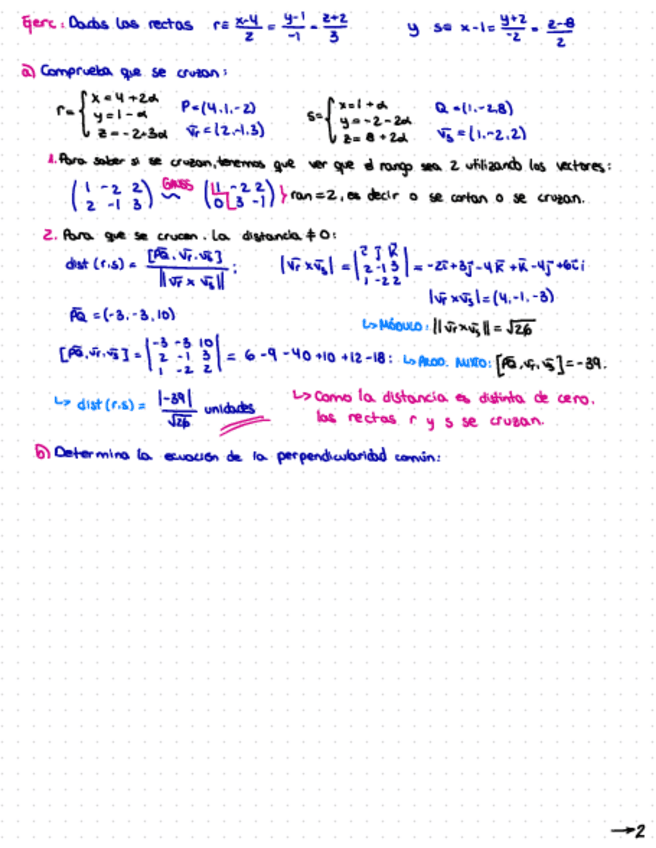 Ejerc: Dadas las rectas r≡ x-4/2 = y-1/-1 = z+2/3 y s≡ x-1= y+2/-2 = z-8/2
a) Comprueba que se cruzan:
r= { x=4+2α P=(4,1,-2) s= { x=1+α Q=(1,-2,8)
y=1-α v̄r=(2,-1,3) y=-2-2α v̄s=(1,-2,2)
z=-2+3α z=8+2α
1. Para saber si se cruzan, tenemos que ver que el rango sea 2 utilizando los vectores:
(1 -2 2) GAUSS (1 -2 2) } ran=2, es decir o se cortan o se cruzan.
(2 -1 3) (0 3 -1)
2. Para que se crucen. La distancia ≠ 0:
dist (r,s) = [P̄Q̄, v̄r, v̄s] / ||v̄r x v̄s|| ; |v̄r x v̄s| = |i j k; 2 -1 3; 1 -2 2| = -2i+3j-4k+k-4j+6i;
|v̄r x v̄s| = (4,-1,-3)
P̄Q̄ = (-3,-3,10) ↳ MÓDULO: ||v̄r x v̄s|| = √26
[P̄Q̄, v̄r, v̄s] = |-3 -3 10; 2 -1 3; 1 -2 2| = 6-9-40+10+12-18: ↳ PROD. MIXTO: [P̄Q̄, v̄r, v̄s] = -39.
↳ dist (r,s) = |-39|/√26 unidades ↳ Como la distancia es distinta de cero,
las rectas r y s se cruzan.
b) Determina la ecuación de la perpendicularidad común:
→2